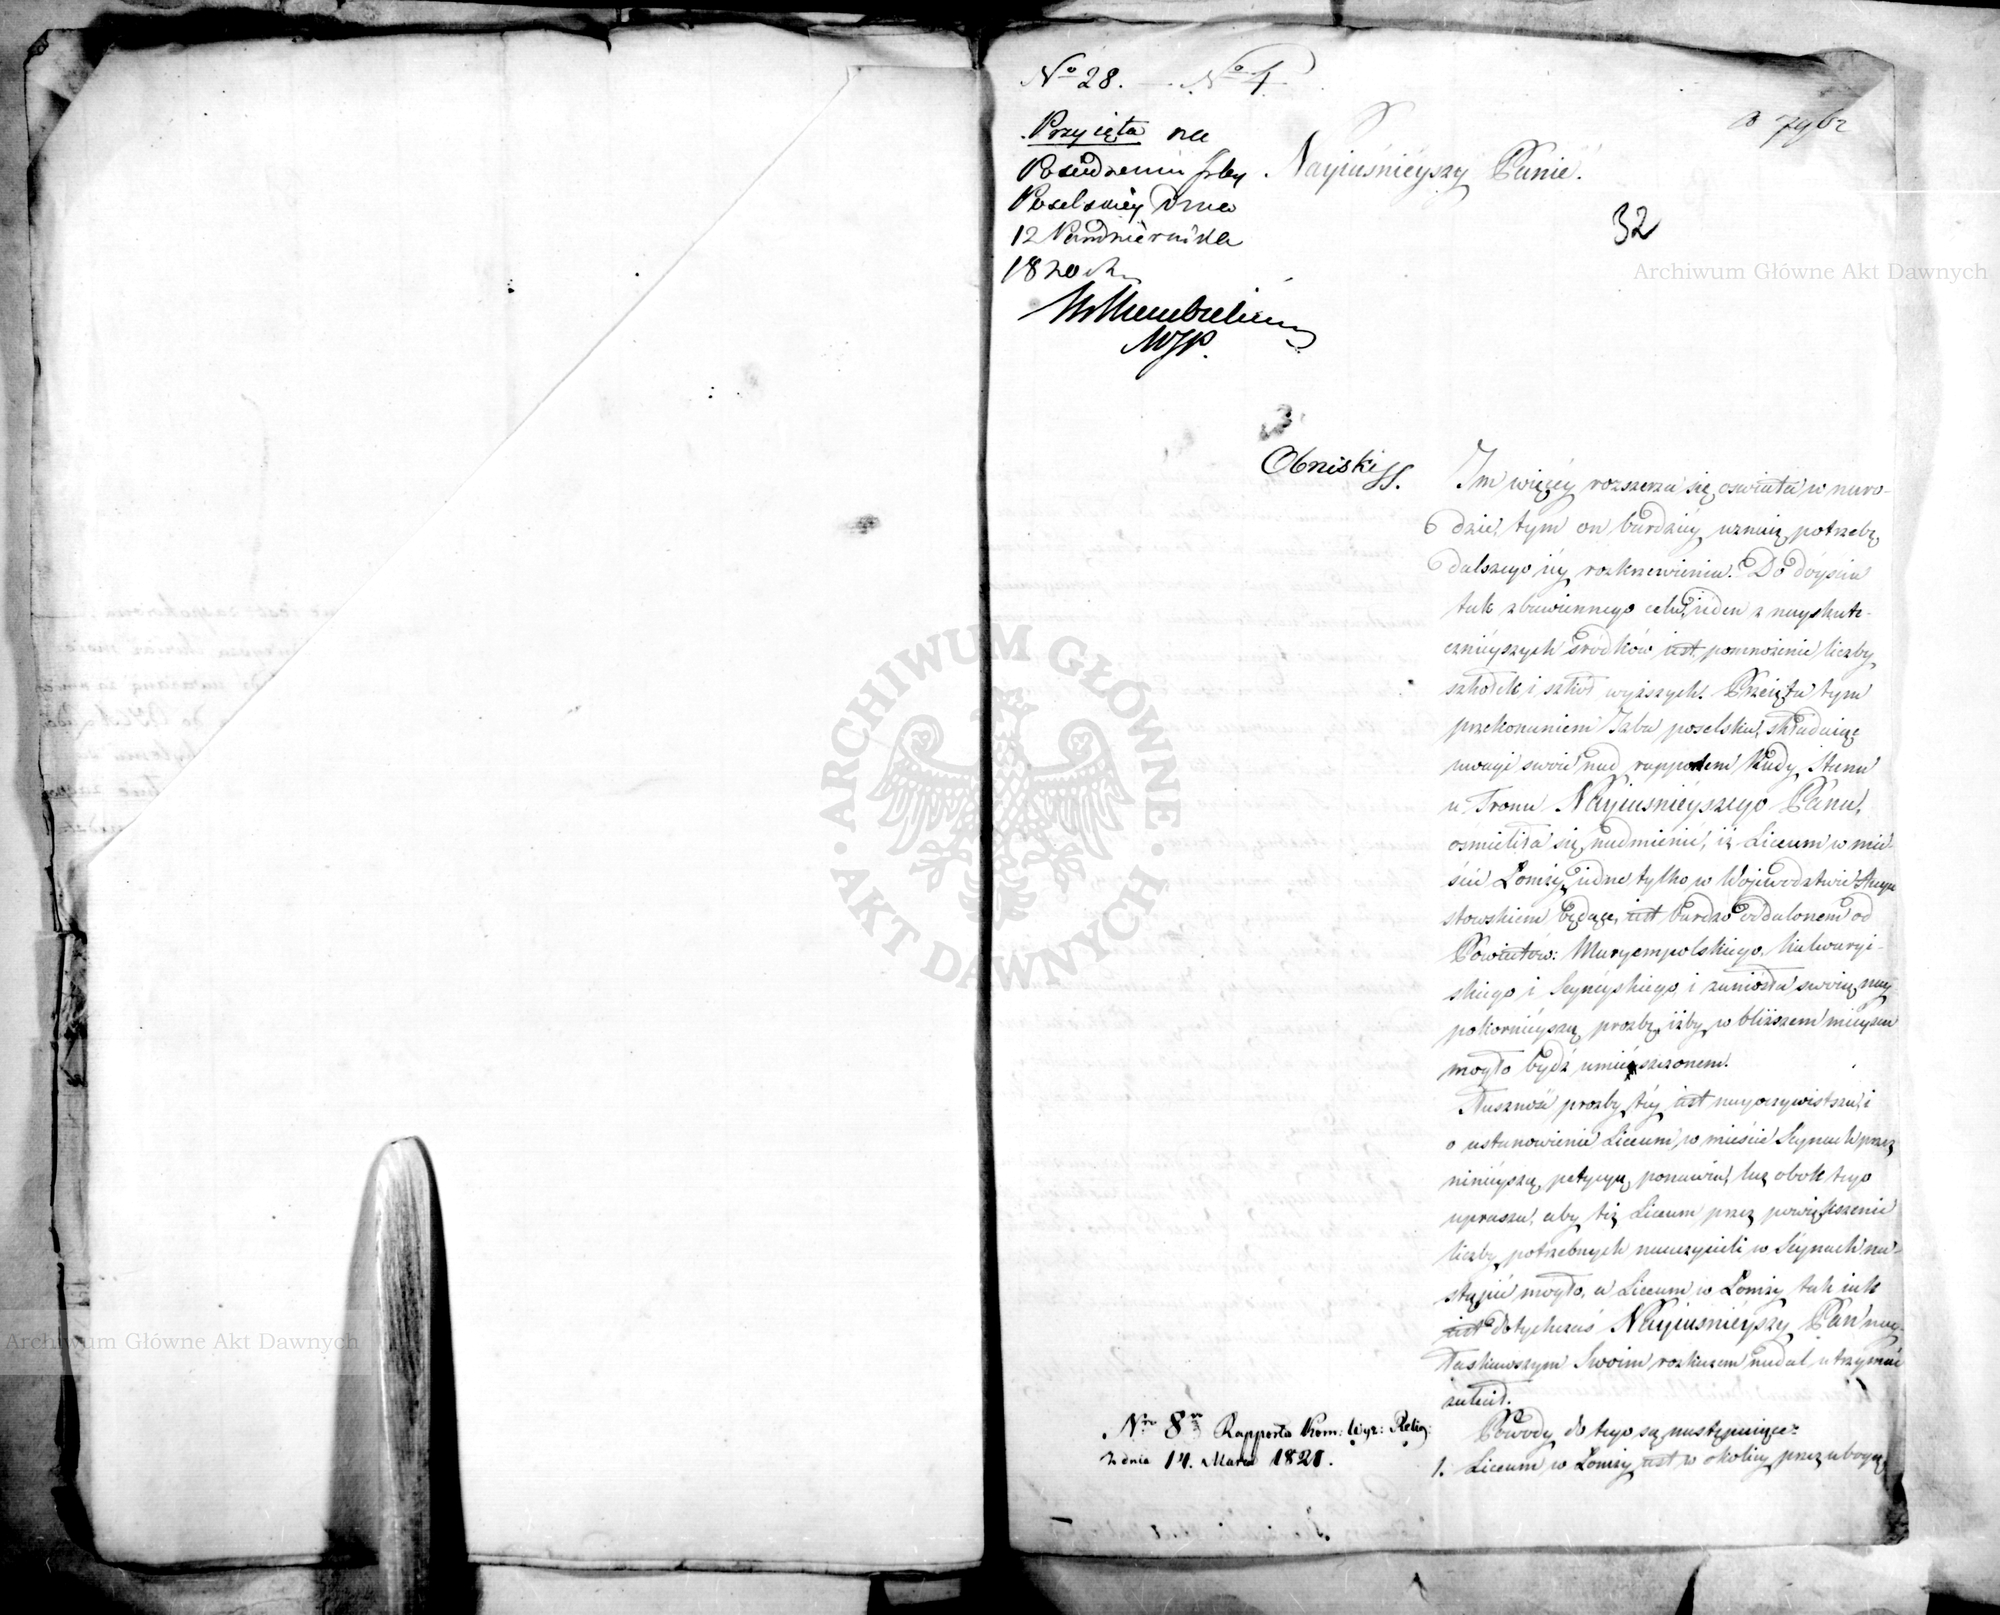 No 28. — No 4.
Przyięta na
Posiedzeniu Izby
Poselskiey Dnia
12 Października
1820 r.
MJP.
Nayiaśnieyszy Panie!
32
Archiwum Główne Akt Dawnych
Obniski
Im więcéy rozszerza się oświata w naro-
dzie, tym on bardziéy uznaie potrzebę
dalszego iéy rozkrzewienia. Do dóyścia
tak zbawiennego celu, ieden z nayskute-
cznieyszych śródków iest, pomnożenie liczby
szkółek i szkół wyższych. Przeięta tym
przekonaniem Izba poselska, składaiąc
uwagi swoie nad rapportem Rady Stanu
u Tronu Nayiaśnieyszego Pana,
ośmieliła się nadmienić, iż Liceum w mie-
ście Łomży, iedne tylko w Woiewodztwie Augu
stowskiem będące, iest bardzo oddalonem od
Powiatów: Maryempolskiego, Kalwaryi-
skiego i Seyneyskiego, i zaniosła swoią nay-
pokornieyszą prozbę, iżby w bliższem mieyscu
mogło bydź umieszczonem.
Słuszność prozby téy iest nayoczywistsza, i
o ustanowienie Liceum w mieście Seynach przez
ninieyszą petycyą ponawia, lecz obok tego
uprasza, aby też Liceum przez powiększenie
liczby potrzebnych nauczycieli w Seynach na-
stąpić mogło, a Liceum w Łomży tak iak
iest dotychczas Nayiaśnieyszy Pan nay-
łaskawszym Swoim rozkazem nadal utrzymać
zalecił.
Powody do tego są następuiące:
1. Liceum w Łomży iest w okolicy przez ubogą
Nro 8vo Rapportu Kom: Wyz: Relig:
z dnia 14. Marca 1821.
ARCHIWUM GŁÓWNE
AKT DAWNYCH
Archiwum Główne Akt Dawnych